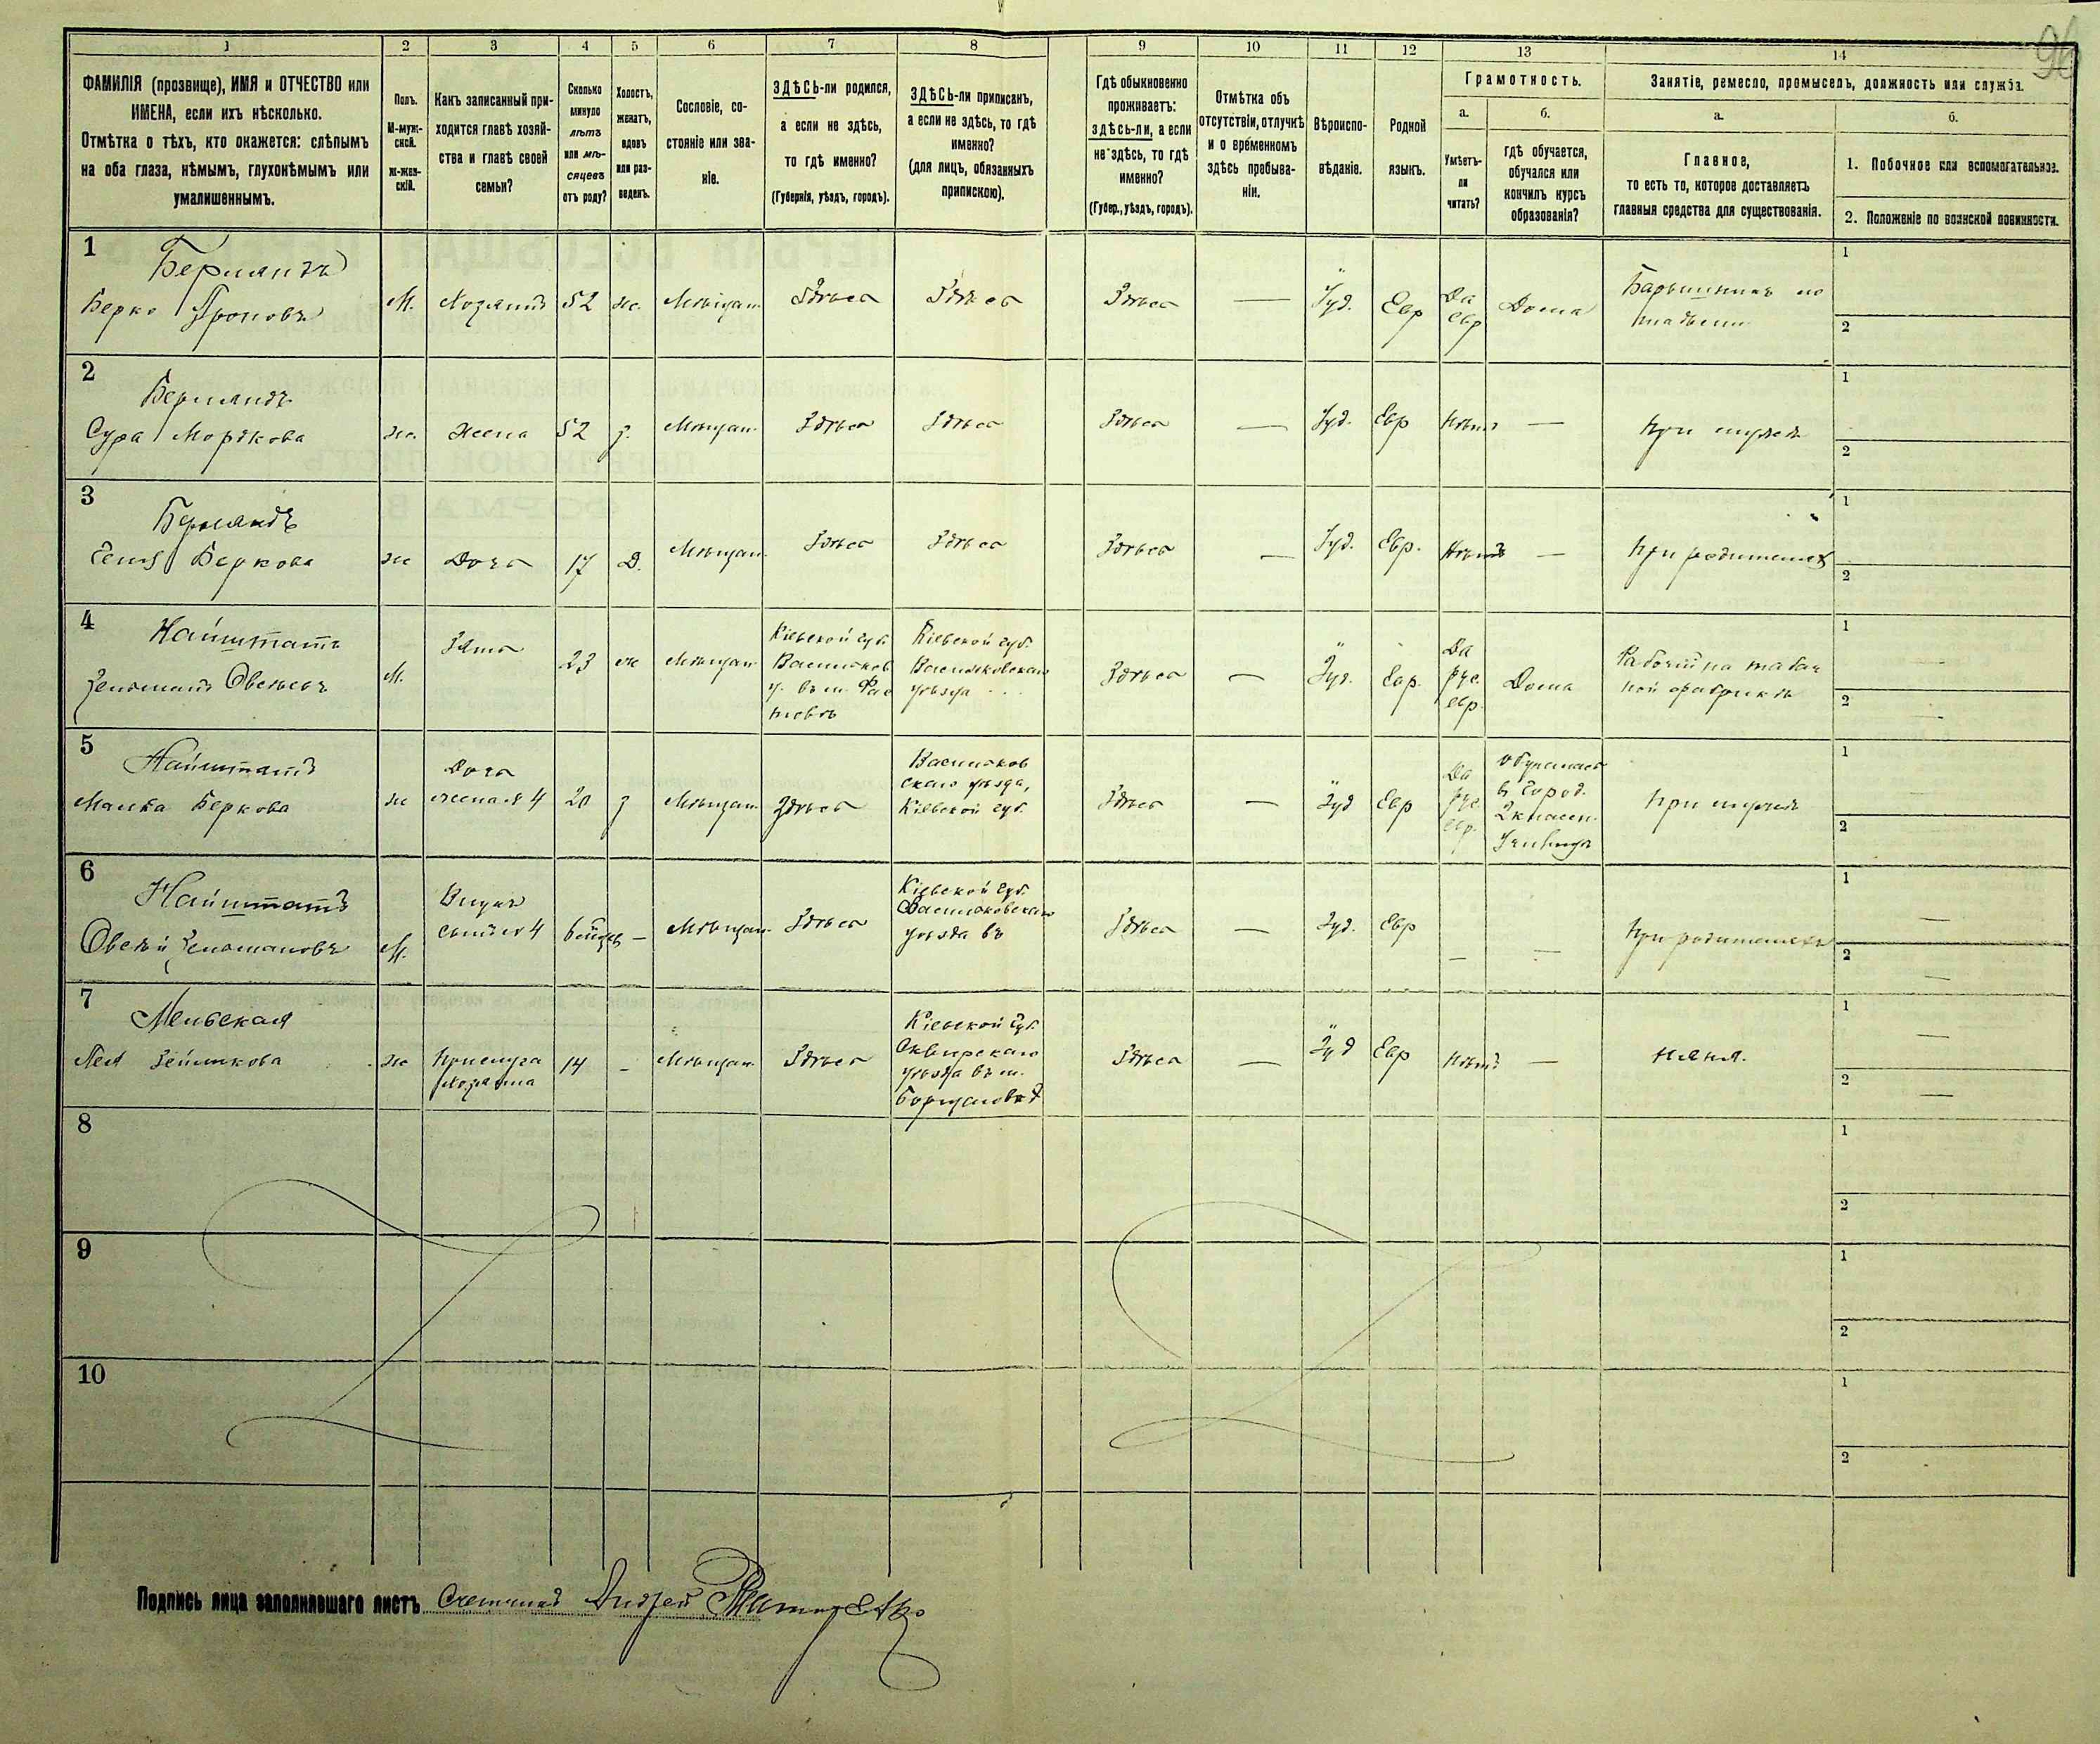 96
1 2 3 4 5 6 7 8 9 10 11 12 13 14
ФАМИЛІЯ (прозвище), ИМЯ и ОТЧЕСТВО или
ИМЕНА, если ихъ нѣсколько.
Отмѣтка о тѣхъ, кто окажется: слѣпымъ
на оба глаза, нѣмымъ, глухонѣмымъ или
умалишеннымъ.
Полъ.
М-муж-
ской.
ж-жен-
скій.
Какъ записанный при-
ходится главѣ хозяй-
ства и главѣ своей
семьи?
Сколько
минуло
лѣтъ
или мѣ-
сяцевъ
отъ роду?
Холостъ,
женатъ,
вдовъ
или раз-
веденъ.
Сословіе, со-
стояніе или зва-
ніе.
ЗДѢСЬ-ли родился,
а если не здѣсь,
то гдѣ именно?
(Губернія, уѣздъ, городъ).
ЗДѢСЬ-ли приписанъ,
а если не здѣсь, то гдѣ
именно?
(для лицъ, обязанныхъ
припискою).
Гдѣ обыкновенно
проживаетъ:
здѣсь-ли, а если
не здѣсь, то гдѣ
именно?
(Губер., уѣздъ, городъ).
Отмѣтка объ
отсутствіи, отлучкѣ
и о временномъ
здѣсь пребыва-
ніи.
Вѣроиспо-
вѣданіе.
Родной
языкъ.
Грамотность.
а.
Умѣетъ-
ли
читать?
б.
гдѣ обучается,
обучался или
кончилъ курсъ
образованія?
Занятіе, ремесло, промыселъ, должность или служба.
а.
Главное,
то есть то, которое доставляетъ
главныя средства для существованія.
б.
1. Побочное или вспомогательное.
2. Положеніе по воинской повинности.
1
Берландъ
Берко Ароновъ
М.
Хозяинъ
52
ж.
Мѣщан.
Здѣсь
Здѣсь
Здѣсь
—
Іуд.
Евр
Да
евр
Дома
Барышникъ
1
2
2
Берландъ
Сура Мордкова
ж.
Жена
52
з.
Мѣщан.
Здѣсь
Здѣсь
Здѣсь
—
Іуд.
Евр
Нѣтъ
—
При мужѣ
1
2
3
Берландъ
Беркова
ж
Дочь
17
Д.
Мѣщан.
Здѣсь
Здѣсь
Здѣсь
—
Іуд.
Евр.
Нѣтъ
—
При родителяхъ
1
2
4
Найштатъ
Зельманъ Овсѣевъ
М.
Зять
23
ж
Мѣщан
Кіевской губ.
Васильков
у. въ м. Фас
товѣ
Кіевской губ.
Васильковскаго
уѣзда
Здѣсь
—
Іуд.
Евр.
Да
рус
евр.
Дома
Рабочій на табач
ной фабрикѣ
1
2
5
Найштатъ
Малка Беркова
ж
Дочь
жена № 4
20
з
Мѣщан
Здѣсь
Васильков
скаго уѣзда,
Кіевской губ.
Здѣсь
—
Іуд
Евр
Да
рус
евр.
обучалась
в город.
2 классн.
Училищѣ
При мужѣ
1
2
6
Найштатъ
Овсѣй Зельмановъ
М.
Внукъ
сынъ № 4
6 мѣсяц.
—
Мѣщан.
Здѣсь
Кіевской губ.
Васильковскаго
уѣзда въ
Здѣсь
—
Іуд.
Евр
—
—
При родителяхъ
1 —
2 —
7
Мельская
Лея Зейликова
ж
Прислуга
хозяина
14
-
Мѣщан.
Здѣсь
Кіевской губ.
Сквирскаго
уѣзда въ м.
Здѣсь
—
Іуд
Евр
Нѣтъ
—
Няня.
1 —
2 —
8
1
2
9
1
2
10
1
2
Подпись лица заполнившаго листъ Счетчикъ Андрей